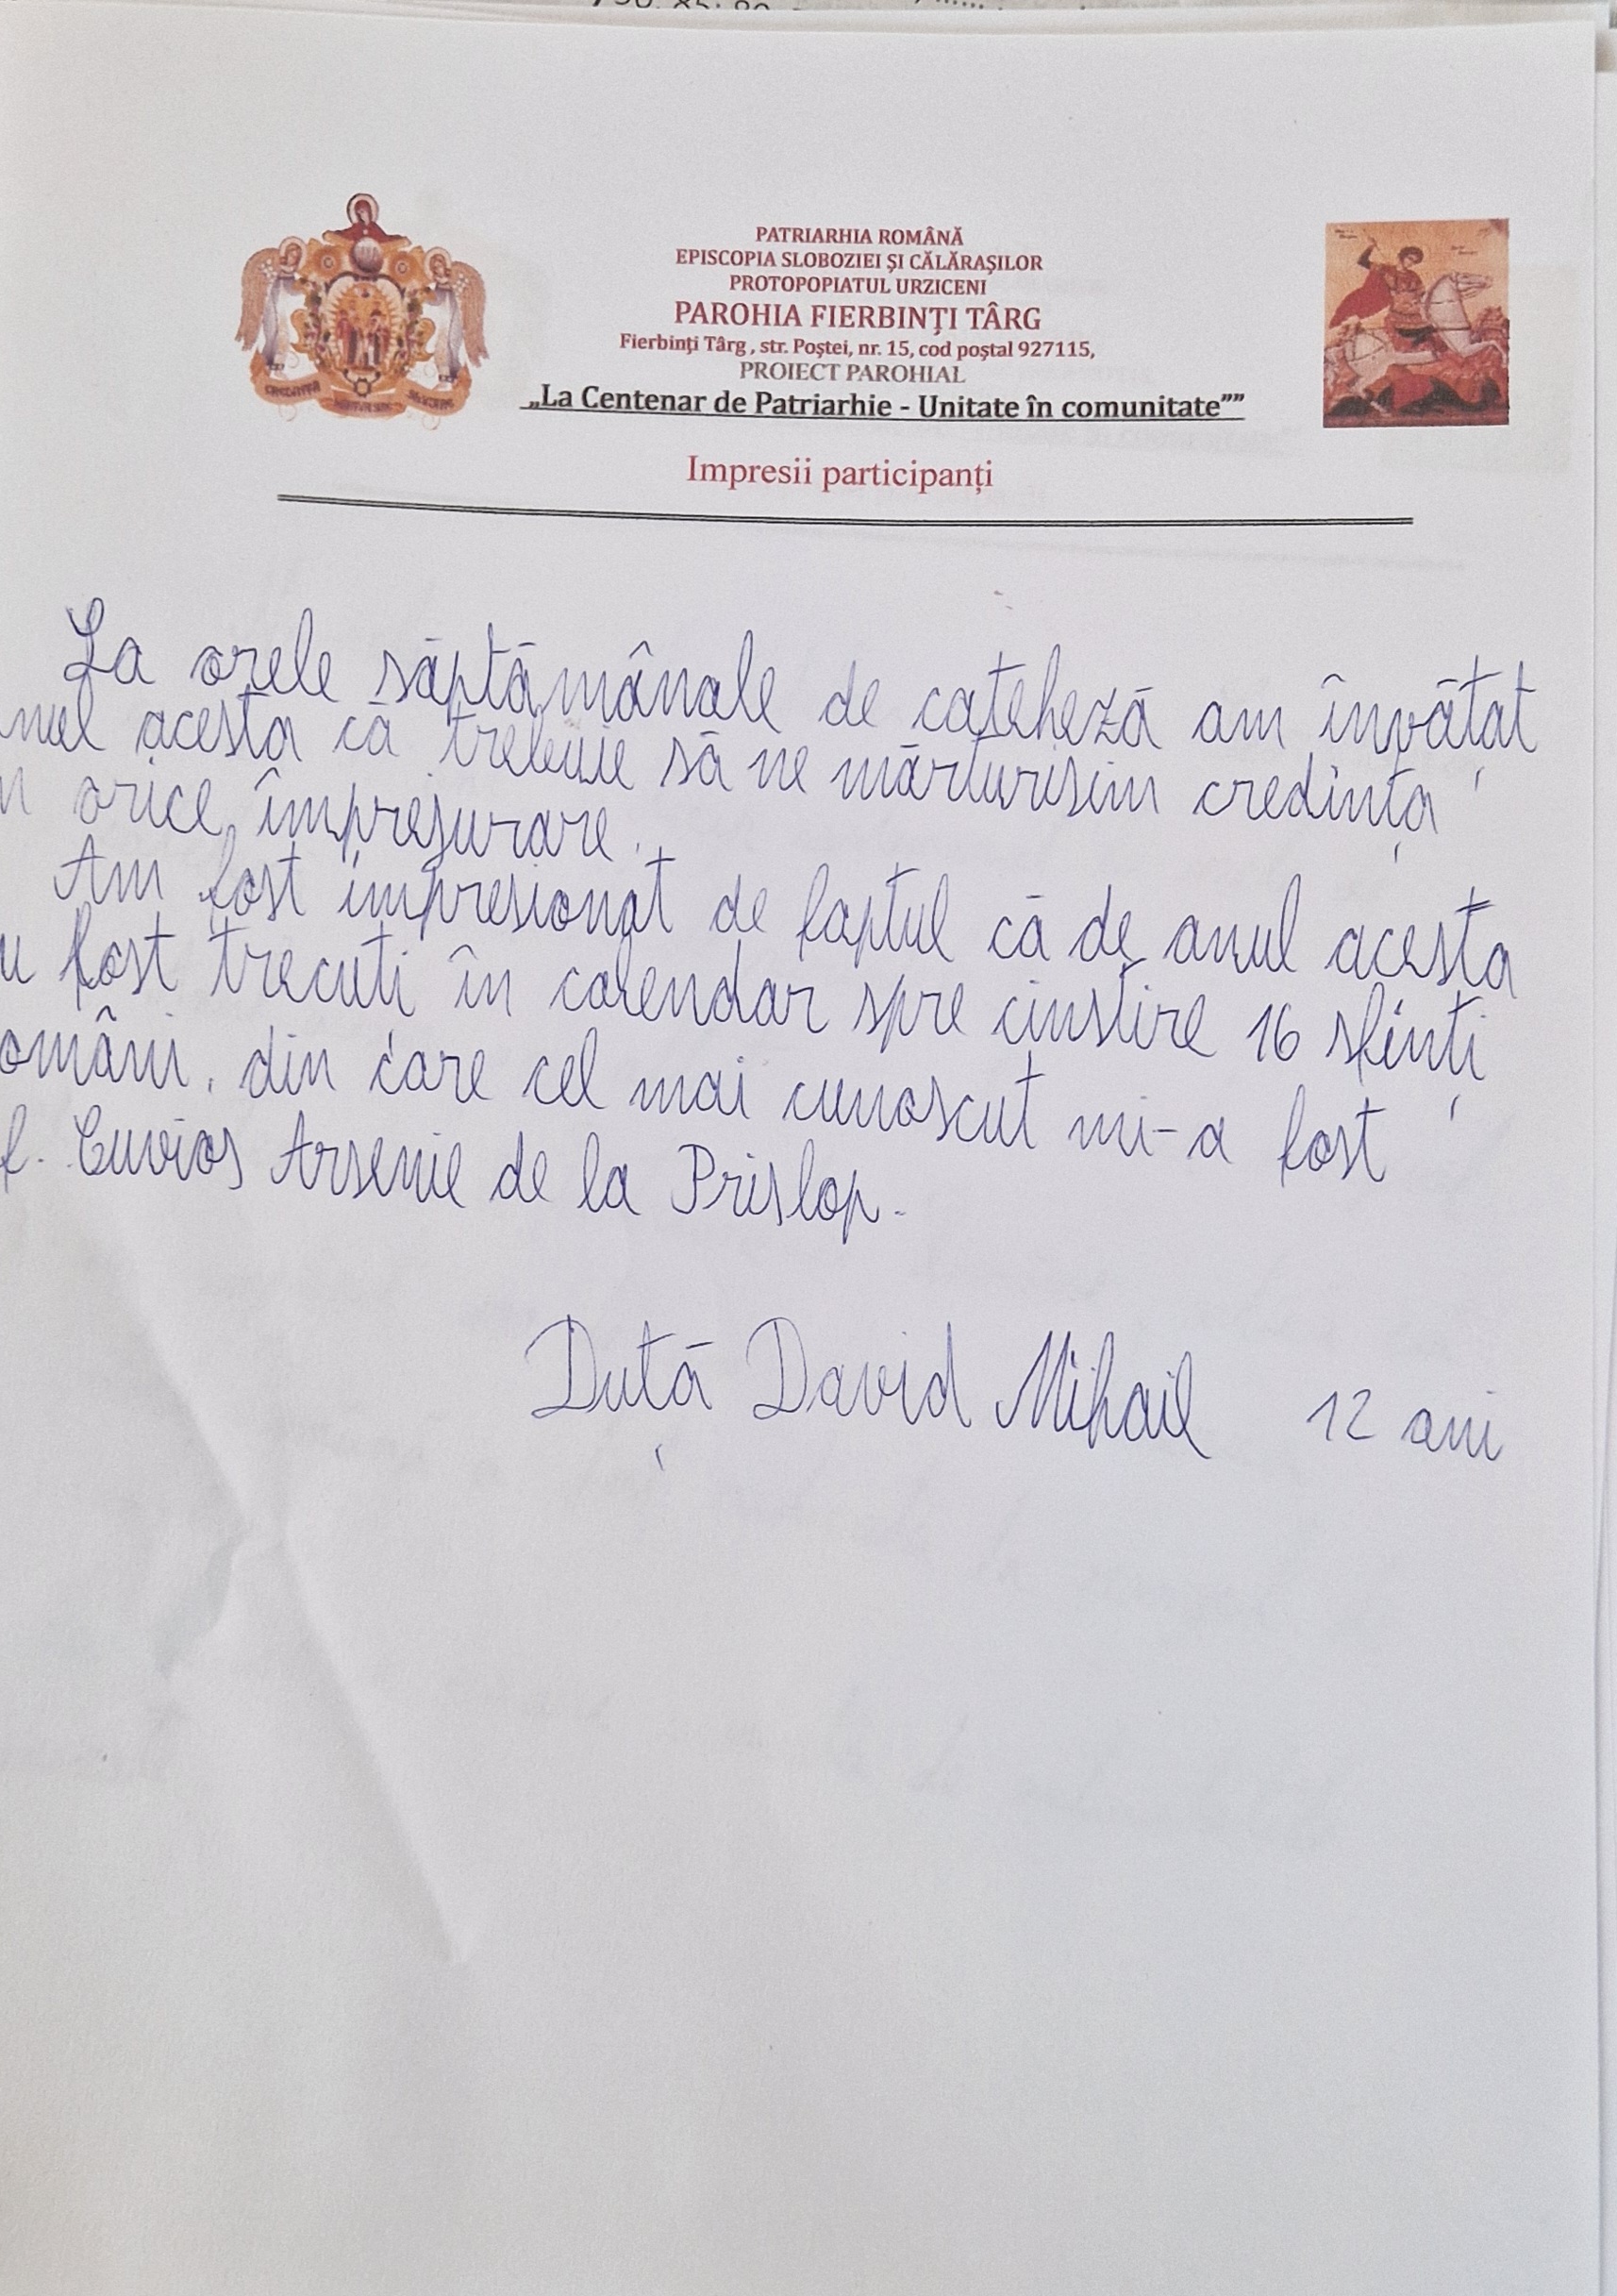 PATRIARHIA ROMÂNĂ
EPISCOPIA SLOBOZIEI ŞI CĂLĂRAŞILOR
PROTOPOPIATUL URZICENI
PAROHIA FIERBINŢI TÂRG
Fierbinţi Târg , str. Poştei, nr. 15, cod poştal 927115,
PROIECT PAROHIAL
„La Centenar de Patriarhie - Unitate în comunitate””
Impresii participanți
La orele săptămânale de cateheză am învățat
nul acesta că trebuie să ne mărturisim credința
n orice împrejurare.
Am fost impresionat de faptul că de anul acesta
u fost trecuți în calendar spre cinstire 16 sfinți
omâni, din care cel mai cunoscut mi-a fost
f. Cuvios Arsenie de la Prislop.
Duță David Mihail 12 ani